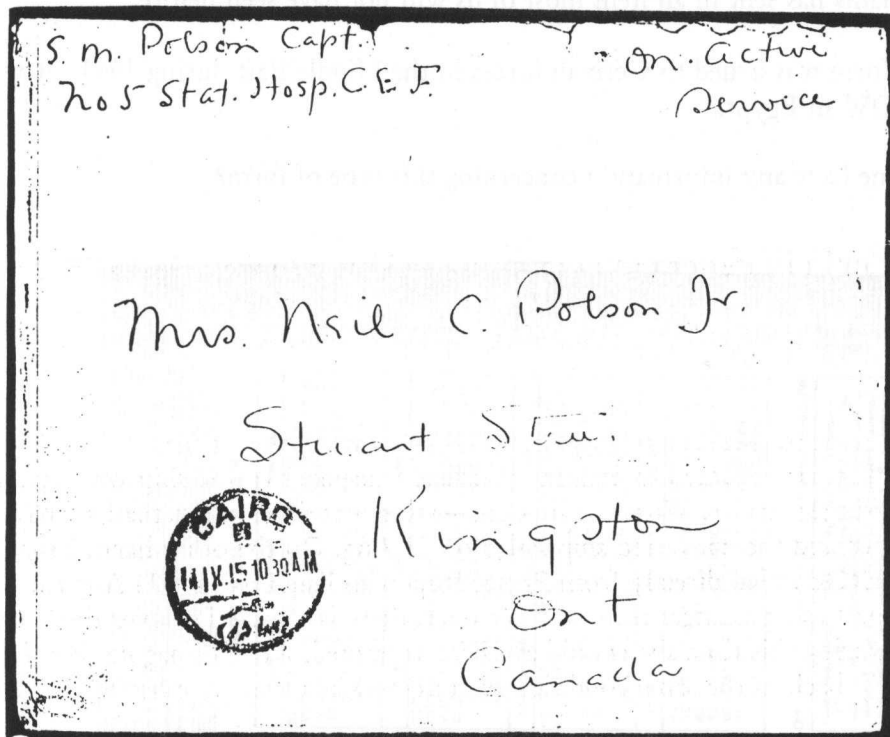 S. M. Polson Capt.
No 5 Stat. Hosp. C.E.F.
On Active
Service
Mrs. Neil C. Polson Jr.
Stuart
Kingston
Ont
Canada
CAIRO
IX.15 10 30 AM